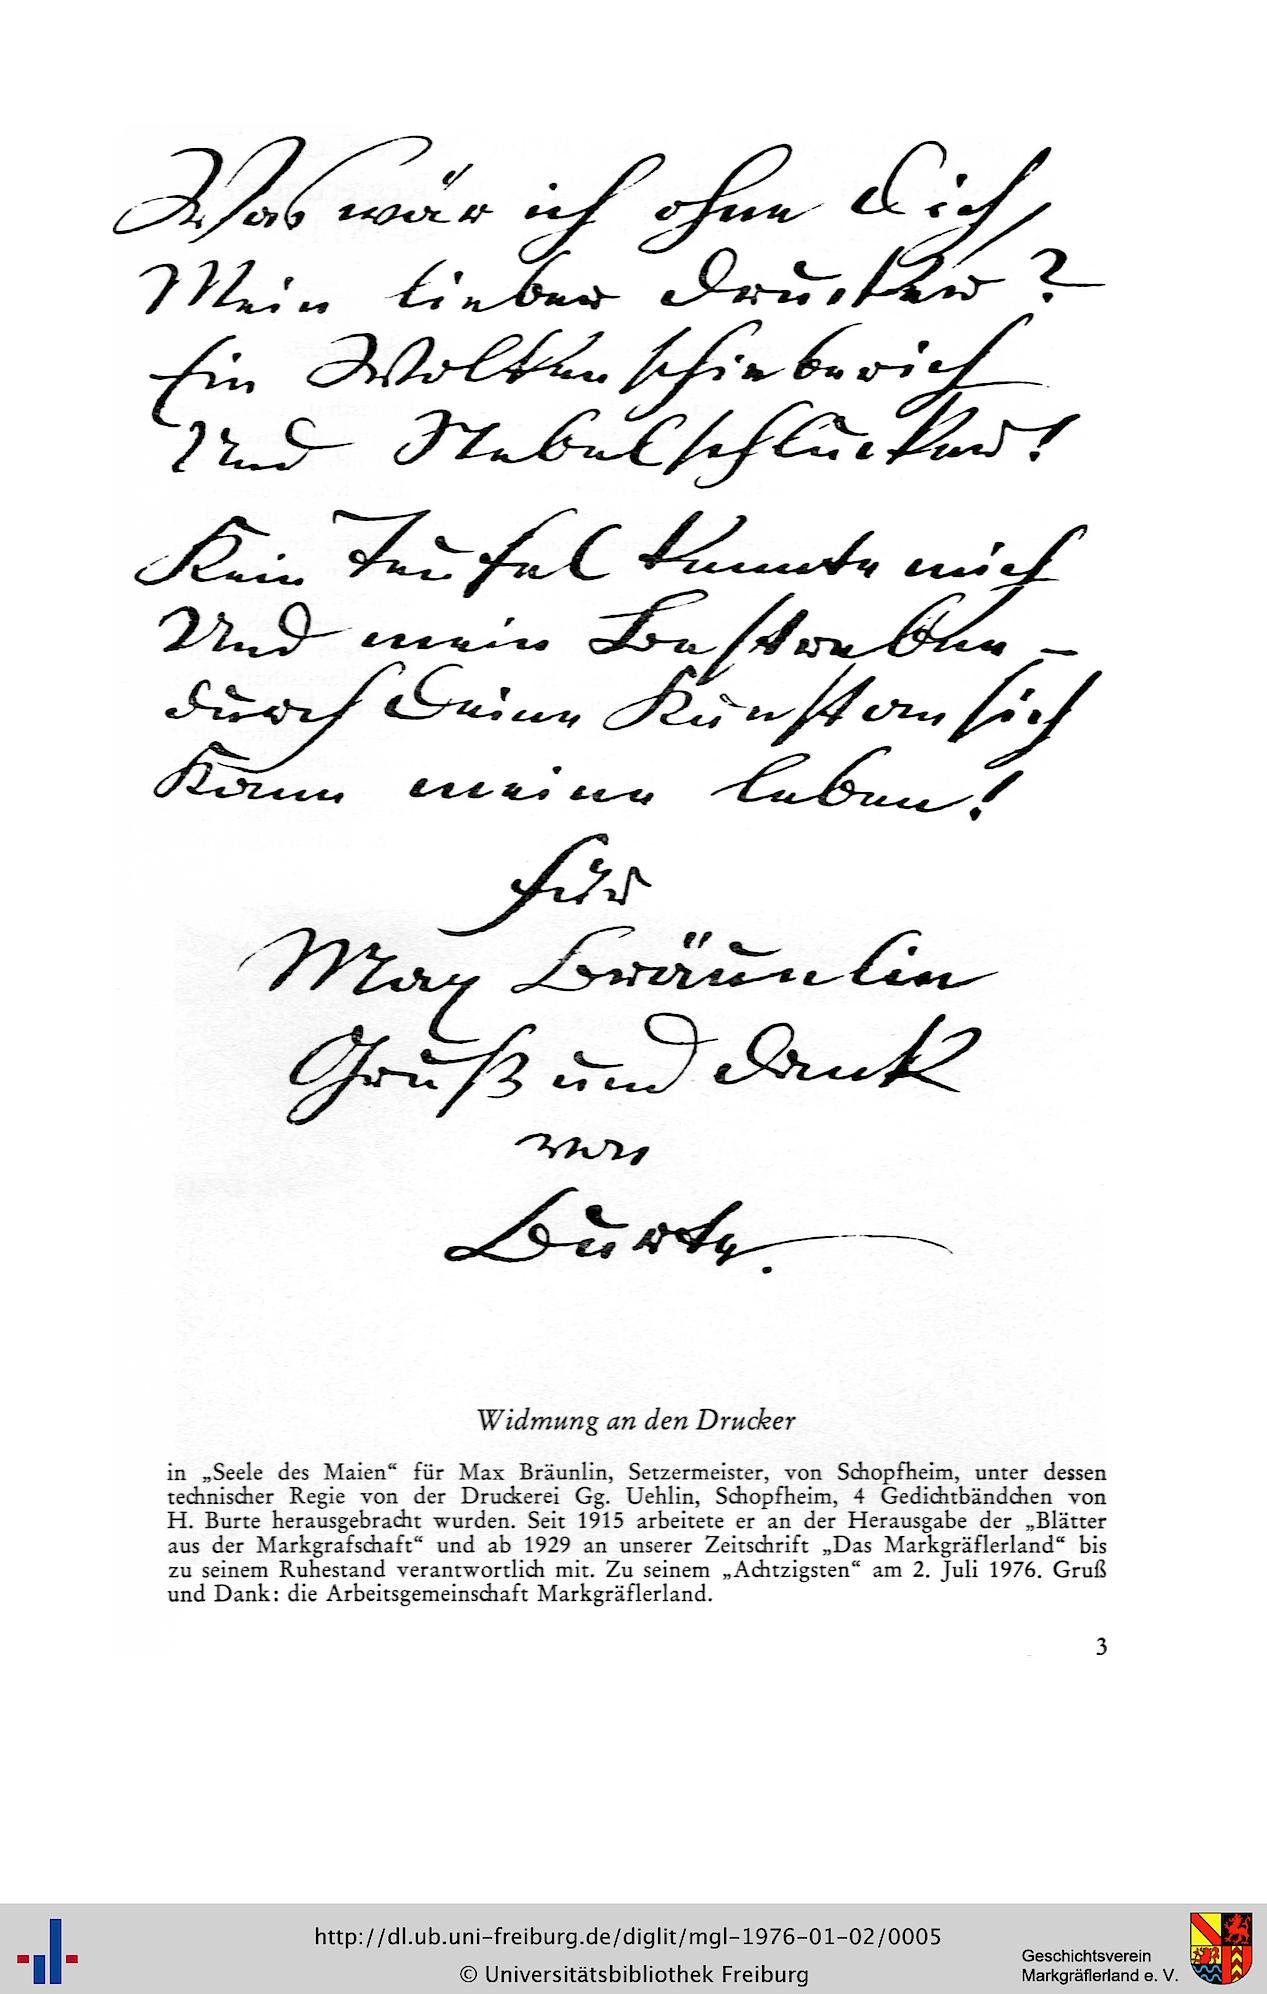 Was wär ich ohne Dich,
Mein lieber Drucker?
Ein Wolkenschieberich
Und Nebelschlucker!
Kein Teufel kennte mich
Und mein Bestreben –
durch Deine Kunst an sich
Kann meine leben!
für
Max Bräunlin
Gruß und Dank
von
Burte.
Widmung an den Drucker
in „Seele des Maien“ für Max Bräunlin, Setzermeister, von Schopfheim, unter dessen
technischer Regie von der Druckerei Gg. Uehlin, Schopfheim, 4 Gedichtbändchen von
H. Burte herausgebracht wurden. Seit 1915 arbeitete er an der Herausgabe der „Blätter
aus der Markgrafschaft“ und ab 1929 an unserer Zeitschrift „Das Markgräflerland“ bis
zu seinem Ruhestand verantwortlich mit. Zu seinem „Achtzigsten“ am 2. Juli 1976. Gruß
und Dank: die Arbeitsgemeinschaft Markgräflerland.
3
http://dl.ub.uni-freiburg.de/diglit/mgl-1976-01-02/0005
© Universitätsbibliothek Freiburg
Geschichtsverein
Markgräflerland e. V.